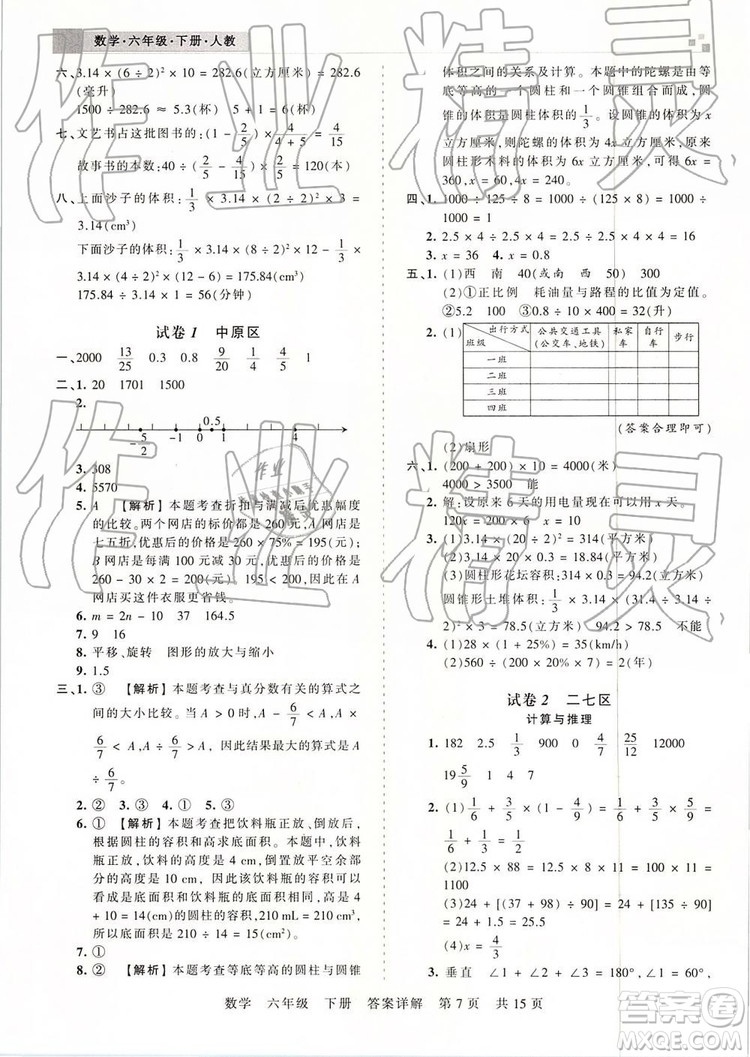 数学·六年级·下册·人教
六、3.14 × (6 ÷ 2)² × 10 = 282.6(立方厘米) = 282.6
(毫升)
1500 ÷ 282.6 ≈ 5.3(杯)　5 + 1 = 6(杯)
七、文艺书占这批图书的:(1 - 2/5) × 4/(4 + 5) = 4/15
故事书的本数:40 ÷ (2/5 - 4/15) × 2/5 = 120(本)
八、上面沙子的体积:1/3 × 3.14 × (2 ÷ 2)² × 3 =
3.14(cm³)
下面沙子的体积:1/3 × 3.14 × (8 ÷ 2)² × 12 - 1/3 ×
3.14 × (4 ÷ 2)² × (12 - 6) = 175.84(cm³)
175.84 ÷ 3.14 = 56(分钟)
试卷 1　中原区
一、2000　13/25　0.3　0.8　9/20　4　1/4　6/5
二、1. 20　1701　1500
2.
0.5
-5/2　-1　0　1　4
3. 308
4. 5570
5. A　【解析】本题考查折扣与满减后优惠幅度
的比较。两个网店的标价都是 260 元,A 网店是
七五折,优惠后的价格是 260 × 75% = 195(元);
B 网店是每满 100 元减 30 元,优惠后的价格是
260 - 30 × 2 = 200(元)。195 < 200,因此在 A 网
店买这件衣服更省钱。
6. m = 2n - 10　37　164.5
7. 9　16
8. 平移、旋转　图形的放大与缩小
9. 1.5
三、1. ③　【解析】本题考查与真分数有关的算式之
间的大小比较。当 A > 0 时,A - 6/7 < A,A ×
6/7 < A,A ÷ 6/7 > A,因此结果最大的算式是 A ÷
6/7。
2. ②　3. ③　4. ②　5. ③
6. ①　【解析】本题考查把饮料瓶正放、倒放后,
根据圆柱的容积和高求底面积。本题中,饮料
瓶正放,饮料的高度是 4 cm,倒置放平空余部分
的高度是 6 cm,所以饮料瓶的容积可以看成高
4 + 6 = 10(cm)的圆柱的容积,210 mL = 210 cm³,
所以饮料瓶的底面积是 210 ÷ 10 = 21(cm²)。
7. ①
8. ②　【解析】本题考查等底等高的圆柱与圆锥
体积之间的关系及计算。本题中的陀螺是由等
底等高的一个圆柱和一个圆锥组合而成。设圆
锥的体积是 2x 立方厘米,则圆柱的体积是 6x
立方厘米,所以陀螺的体积是 8x 立方厘米,原来
圆柱形木料的体积是 6x 立方厘米,可得 6x =
360,x = 60,4x = 240。
四、1. 1000 ÷ 125 ÷ 8 = 1000 ÷ (125 × 8) = 1000 ÷
1000 = 1
2. 2.5 × 4 ÷ 2.5 × 4 = 2.5 ÷ 2.5 × 4 × 4 = 16
3. x = 36　4. x = 0.8
五、1. (1)西　南　40(或南　西　50)　300
(2)①正比例　耗油量与路程的比值为定值。
②5.2　100　③8 ÷ 100 × 400 = 32(升)
2. (1)
出行方式
班级
公共交通工具
(公交车、地铁)
私家
车
自行
车
步行
一班
二班
三班
四班
(答案合理即可)
(2)扇形
六、1. (200 + 200) × 10 = 4000(米)
4000 > 3500　能
2. 解:设原来 6 天的用电量现在可以用 x 天。
120x = 200 × 6　x = 10
3. (1)3.14 × (20 ÷ 2)² = 314(平方米)
(2)圆柱形花坛容积:314 × 0.3 = 94.2(立方米)
圆锥形土堆体积:1/3 × 3.14 × (12.56 ÷ 3.14 ÷
2)² × 2 ≈ 8.37(立方米)　94.2 > 8.37　不能
4. (1)28 × (1 + 25%) = 35(km/h)
(2)560 ÷ (35 × 8) = 560 ÷ 280 = 2(年)
试卷 2　二七区
计算与推理
1. 182　2.5　1/3　900　0　4/7　25/12　12000
19 5/9　4
2. (1)1/6 ÷ [2/3 × (1/4 + 1/2)] = 1/6 ÷ [2/3 × 3/4] =
1/6 ÷ 1/2 = 1/3
(2)12.5 × 88 = 12.5 × 8 × 11 = 100 × 11 =
1100
(3)24 ÷ [(37 + 98) ÷ 90] = 24 ÷ [135 ÷ 90]
= 24 ÷ 1.5 = 16
(4)x = 4/3
3. 垂直
数学　六年级　下册　答案详解　第 7 页　共 15 页
作业精灵
作业精灵
答案圈
MXQE.COM